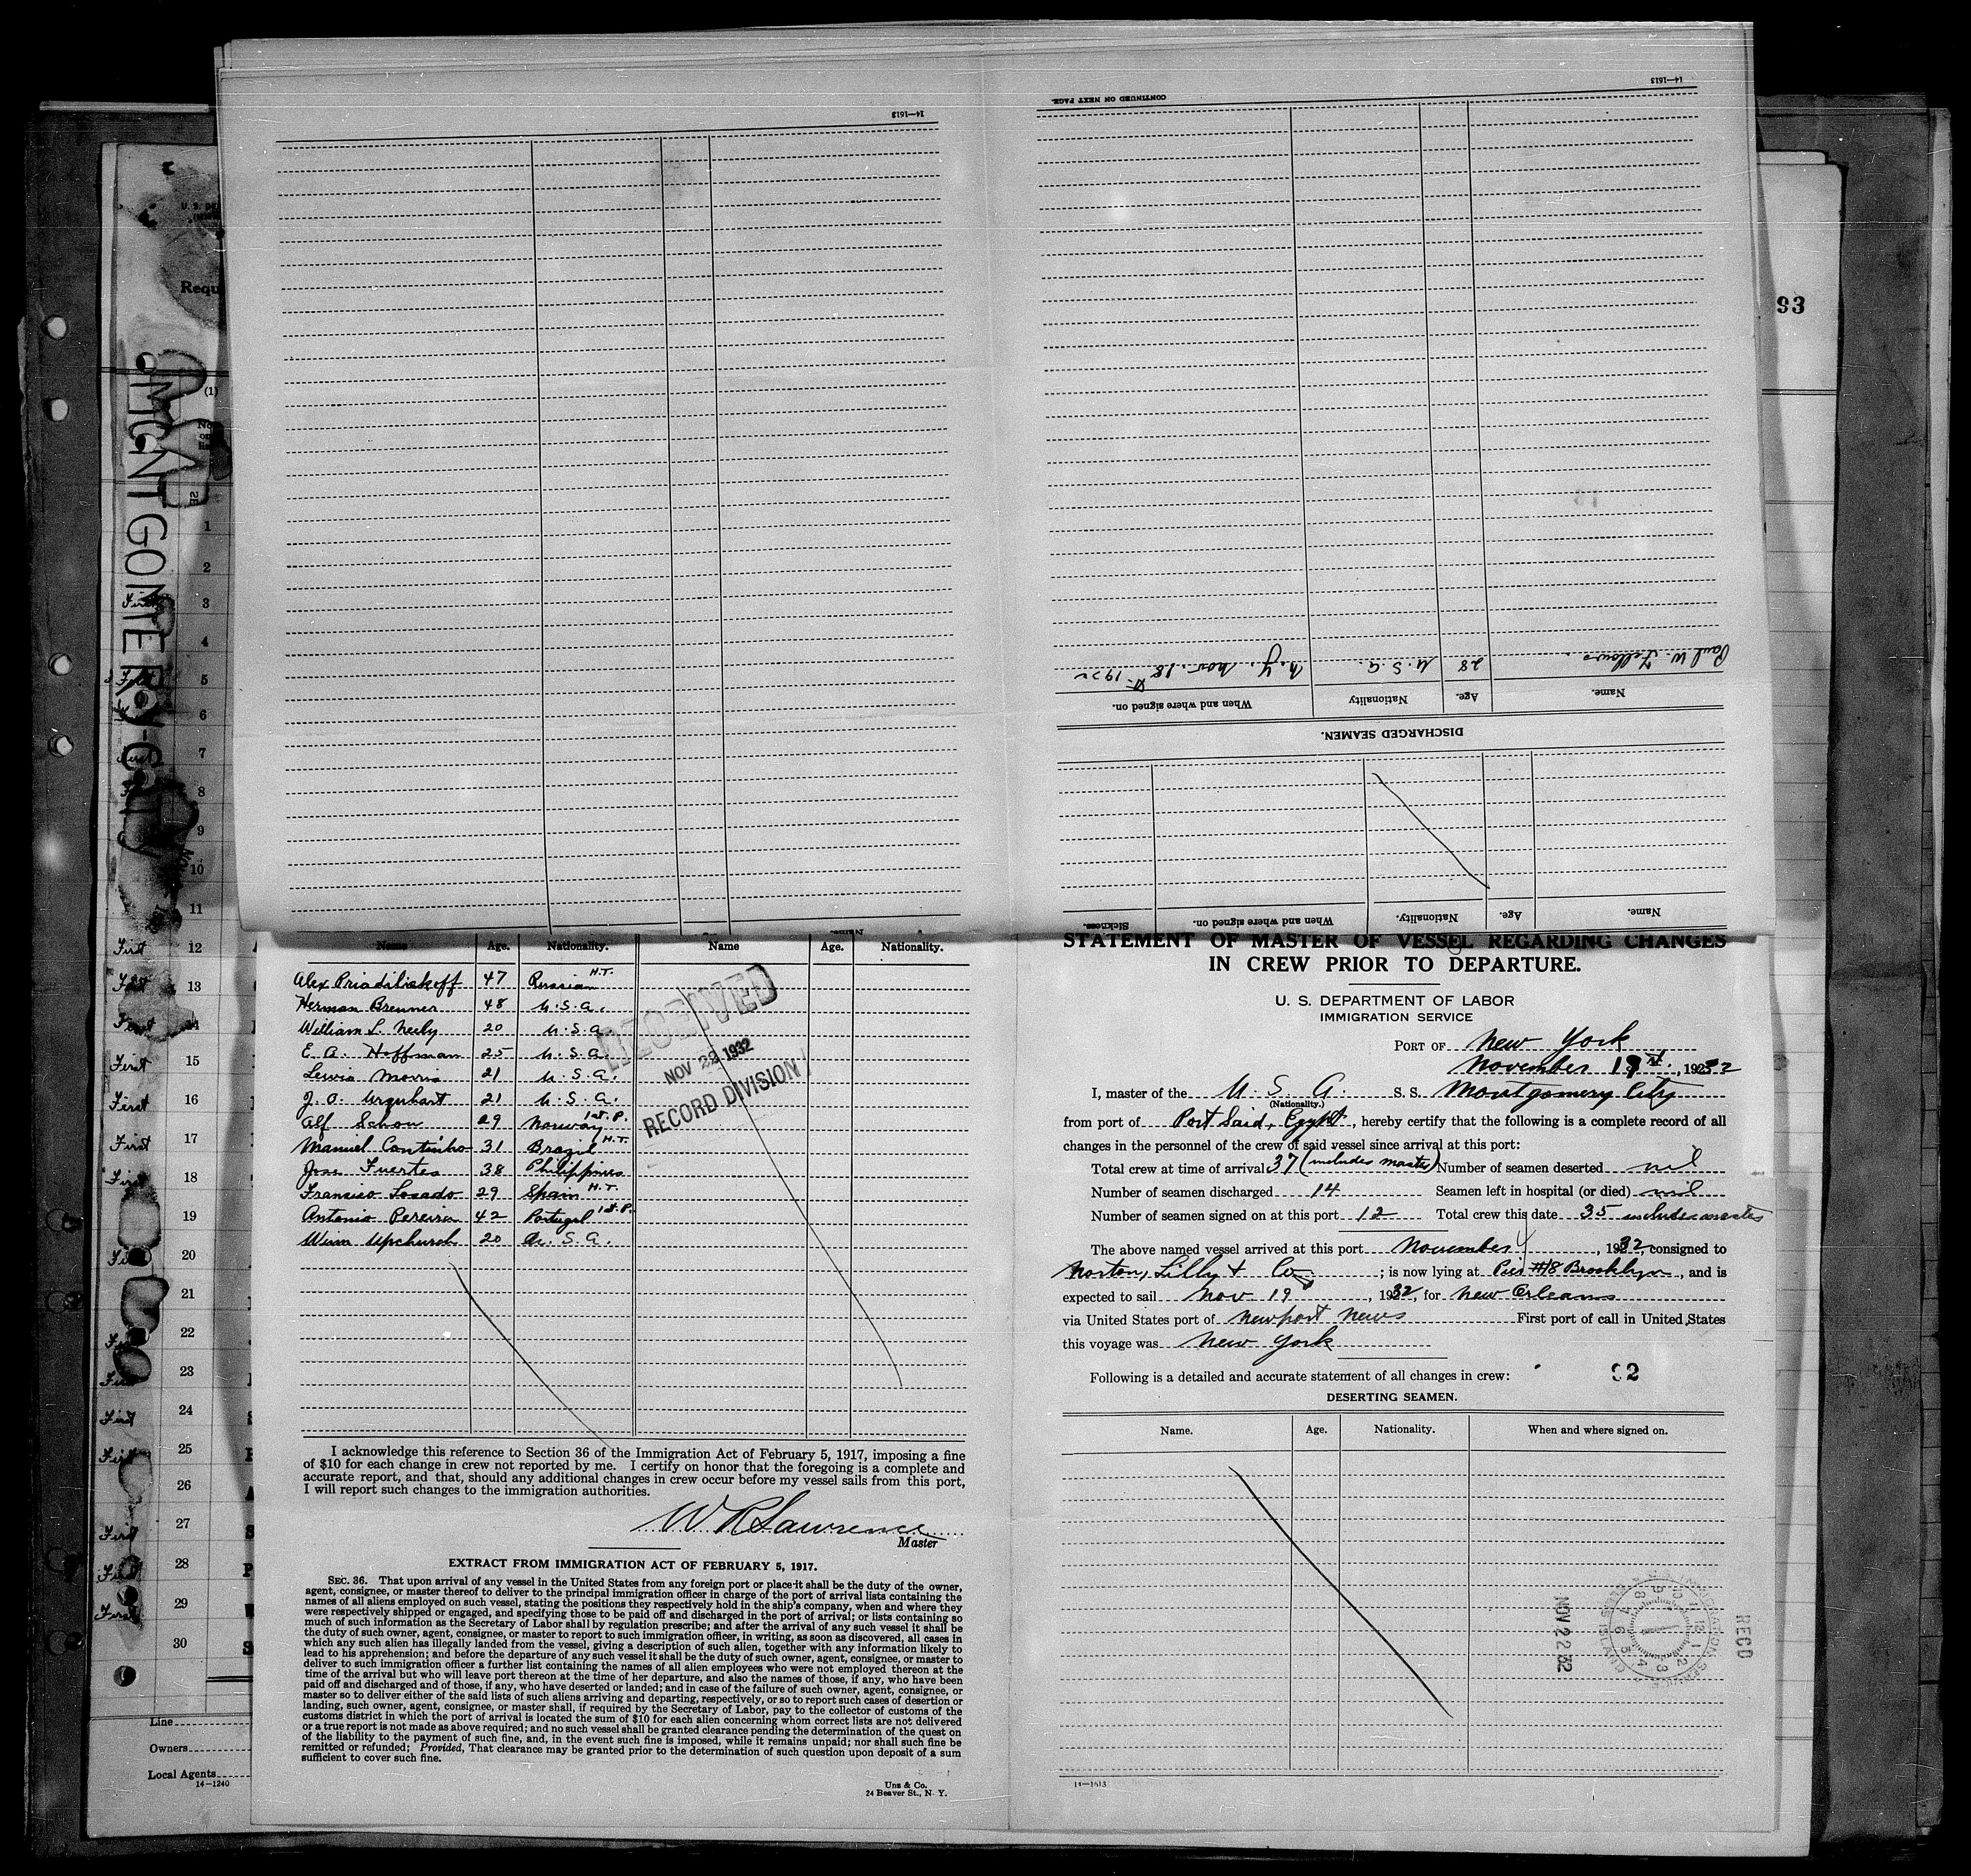 14—1613
14—1613
CONTINUED ON NEXT PAGE.
Paul W. Fellows. 28 U.S.A. N.Y. Nov. 18th 1932
Name. Age. Nationality When and where signed on.
DISCHARGED SEAMEN.
Name. Age. Nationality. When and where signed on. Sickness.
93
U. S. DE
Requ
(1)
MONTGOMERY CITY
1
2
First 3
4
5
6
First 7
8
9
10
11
First 12
First 13
First 14
First 15
First 16
First 17
First 18
19
First 20
21
First 22
First 23
First 24
First 25
26
First 27
First 28
First 29
30
Line
Owners
Local Agents
14—1240
Name Age. Nationality. Name Age. Nationality.
Alex Priadiliskoff 47 Russian H.T.
Herman Brenner 48 U.S.A.
William L. Neely 20 U.S.A.
E. A. Hoffman 25 U.S.A.
Lewis Morris 21 U.S.A.
J. O. Urquhart 21 U.S.A.
Alf Schon 29 Norway 1st P.
Manuel Continho 31 Brazil H.T.
Jose Fuertes 38 Philippines
Francisco Losado 29 Spain H.T.
Antonio Pereira 42 Portugal 1st P.
Wm Upchurch 20 U.S.A.
RECEIVED
NOV 22 1932
RECORD DIVISION
I acknowledge this reference to Section 36 of the Immigration Act of February 5, 1917, imposing a fine
of $10 for each change in crew not reported by me. I certify on honor that the foregoing is a complete and
accurate report, and that, should any additional changes in crew occur before my vessel sails from this port,
I will report such changes to the immigration authorities.
W R Lawrence
Master
EXTRACT FROM IMMIGRATION ACT OF FEBRUARY 5, 1917.
SEC. 36. That upon arrival of any vessel in the United States from any foreign port or place it shall be the duty of the owner,
agent, consignee, or master thereof to deliver to the principal immigration officer in charge of the port of arrival lists containing the
names of all aliens employed on such vessel, stating the positions they respectively hold in the ship's company, when and where they
were respectively shipped or engaged, and specifying those to be paid off and discharged in the port of arrival; or lists containing so
much of such information as the Secretary of Labor shall by regulation prescribe; and after the arrival of any such vessel it shall be
the duty of such owner, agent, consignee, or master to report to such immigration officer, in writing, as soon as discovered, all cases in
which any such alien has illegally landed from the vessel, giving a description of such alien, together with any information likely to
lead to his apprehension; and before the departure of any such vessel it shall be the duty of such owner, agent, consignee, or master to
deliver to such immigration officer a further list containing the names of all alien employees who were not employed thereon at the
time of the arrival but who will leave port thereon at the time of her departure, and also the names of those, if any, who have been
paid off and discharged and of those, if any, who have deserted or landed; and in case of the failure of such owner, agent, consignee, or
master so to deliver either of the said lists of such aliens arriving and departing, respectively, or so to report such cases of desertion or
landing, such owner, agent, consignee, or master shall, if required by the Secretary of Labor, pay to the collector of customs of the
customs district in which the port of arrival is located the sum of $10 for each alien concerning whom correct lists are not delivered
or a true report is not made as above required; and no such vessel shall be granted clearance pending the determination of the quest on
of the liability to the payment of such fine, and, in the event such fine is imposed, while it remains unpaid; nor shall such fine be
remitted or refunded; Provided, That clearance may be granted prior to the determination of such question upon deposit of a sum
sufficient to cover such fine.
Unz & Co.
24 Beaver St., N. Y.
STATEMENT OF MASTER OF VESSEL REGARDING CHANGES
IN CREW PRIOR TO DEPARTURE.
U. S. DEPARTMENT OF LABOR
IMMIGRATION SERVICE
PORT OF New York
November 19th, 1932
I, master of the U. S. A. S. S. Montgomery City
(Nationality.)
from port of Port Said, Egypt, hereby certify that the following is a complete record of all
changes in the personnel of the crew of said vessel since arrival at this port:
Total crew at time of arrival 37 (includes master) Number of seamen deserted nil
Number of seamen discharged 14 Seamen left in hospital (or died) nil
Number of seamen signed on at this port 12 Total crew this date 35 includes master
The above named vessel arrived at this port November 4, 1932, consigned to
Norton, Lilly & Co; is now lying at Pier #18 Brooklyn, and is
expected to sail Nov 19, 1932, for New Orleans
via United States port of Newport News First port of call in United States
this voyage was New York
Following is a detailed and accurate statement of all changes in crew: 92
DESERTING SEAMEN.
Name. Age. Nationality. When and where signed on.
NOV 22 32
RECD
14—1613